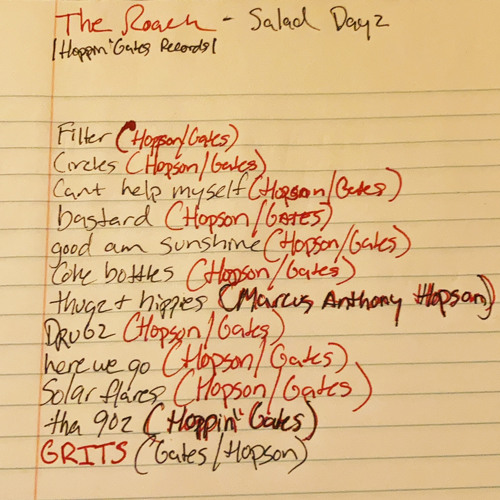 The Roach - Salad Dayz
|Hoppin' Gates Records|
Filter (Hopson/Gates)
Circles (Hopson/Gates)
Cant help myself (Hopson/Gates)
bastard (Hopson/Gates)
good am sunshine (Hopson/Gates)
Coke bottles (Hopson/Gates)
thugz + hippies (Marcus Anthony Hopson)
DRUGZ (Hopson/Gates)
here we go (Hopson/Gates)
Solar flares (Hopson/Gates)
tha 90z (Hoppin' Gates)
GRITS (Gates/Hopson)